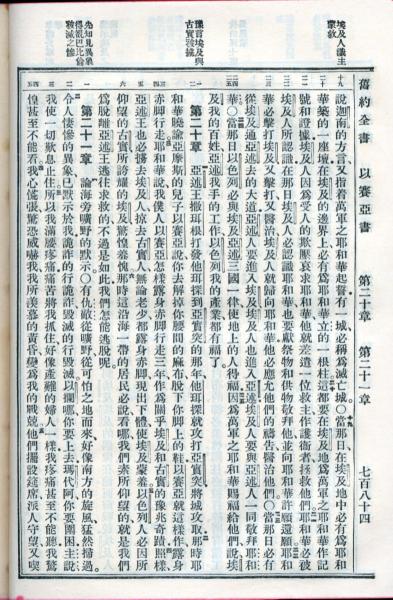 舊約全書 以賽亞書 第二十章 第二十一章 七百八十四
埃及人識主蒙救
說迦南的方言又指着萬軍之耶和華起誓有一城必稱爲滅亡城〇當那日在埃及地中必有爲耶和
華築的一座壇在埃及的邊界上必有爲耶和華立的一根柱這都要在埃及地爲萬軍之耶和華作記
號和證據埃及人因爲受人的欺壓哀求耶和華他就差遣一位救主作護衛者拯救他們耶和華必被
埃及人所認識在那日埃及人必認識耶和華也要獻祭物和供物敬拜他並向耶和華許願還願耶和
華必擊打埃及又擊打又醫治埃及人就歸向耶和華他必應允他們的禱告醫治他們〇當那日必有
從埃及通亞述去的大道亞述人要進入埃及埃及人也進入亞述埃及人要與亞述人一同敬拜耶和
華〇當那日以色列必與埃及亞述三國一律使地上的人得福因爲萬軍之耶和華賜福給他們說埃
及我的百姓亞述我手的工作以色列我的產業都有福了
豫言埃及與古實被擄
第二十章 亞述王撒珥根打發他珥探到亞實突的那年他珥探就攻打亞實突將城攻取那時耶
和華曉諭亞摩斯的兒子以賽亞說你去解掉你腰間的麻布脫下你脚上的鞋以賽亞就這樣作露身
赤脚行走耶和華說我僕人以賽亞怎樣露身赤脚行走三年作爲關乎埃及和古實的豫兆奇蹟照樣
亞述王也必擄去埃及人掠去古實人無論老少都露身赤脚現出下體使埃及蒙羞以色列人必因所
仰望的古實所誇耀的埃及驚惶羞愧那時這沿海一帶的居民必說看哪我們素所仰望的就是我們
爲脫離亞述王逃往求救的不過是如此我們怎能逃脫呢
先知見異象得報巴比倫毀滅之慘
第二十一章 論海旁曠野的默示〇有仇敵從曠野從可怕之地而來好像南方的旋風猛然掃過
令人悽慘的異象已默示於我詭詐的行詭詐毀滅的行毀滅以攔哪你要上去瑪代阿你要圍困主說
我使一切歎息止住所以我滿腰疼痛痛苦將我抓住好像產難的婦人一樣我疼痛甚至不能聽我驚
惶甚至不能看我心慌張驚恐威嚇我我所羨慕的黃昏變爲我的戰兢他們擺設筵席派人守望又喫